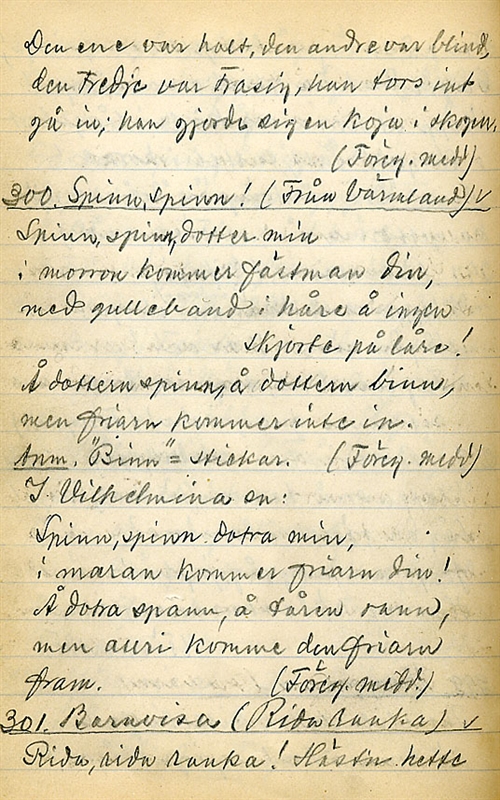 Den ene var halt, den andre var blind,
den tredje var trasig, han tors int
gå in; han gjorde sig en koja i skogen.
(Föreg. medd)
300. Spinn, spinn! (Från Värmland) v
Spinn, spinn, dotter min
i morron kommer fästman din,
med gulleband i håre å ingen
skjorte på låre!
Å dottern spinn, å dottern binn,
men friarn kommer inte in.
Anm. "Binn" = stickar. (Föreg. medd)
I Vilhelmina sn:
Spinn, spinn dotra min,
i maran kommer friarn din!
Å dotra spann, å tåren rann,
men aldri komme den friarn
fram. (Föreg. medd.)
301. Barnvisa (Rida ranka) v
Rida, rida ranka! Hästn hette